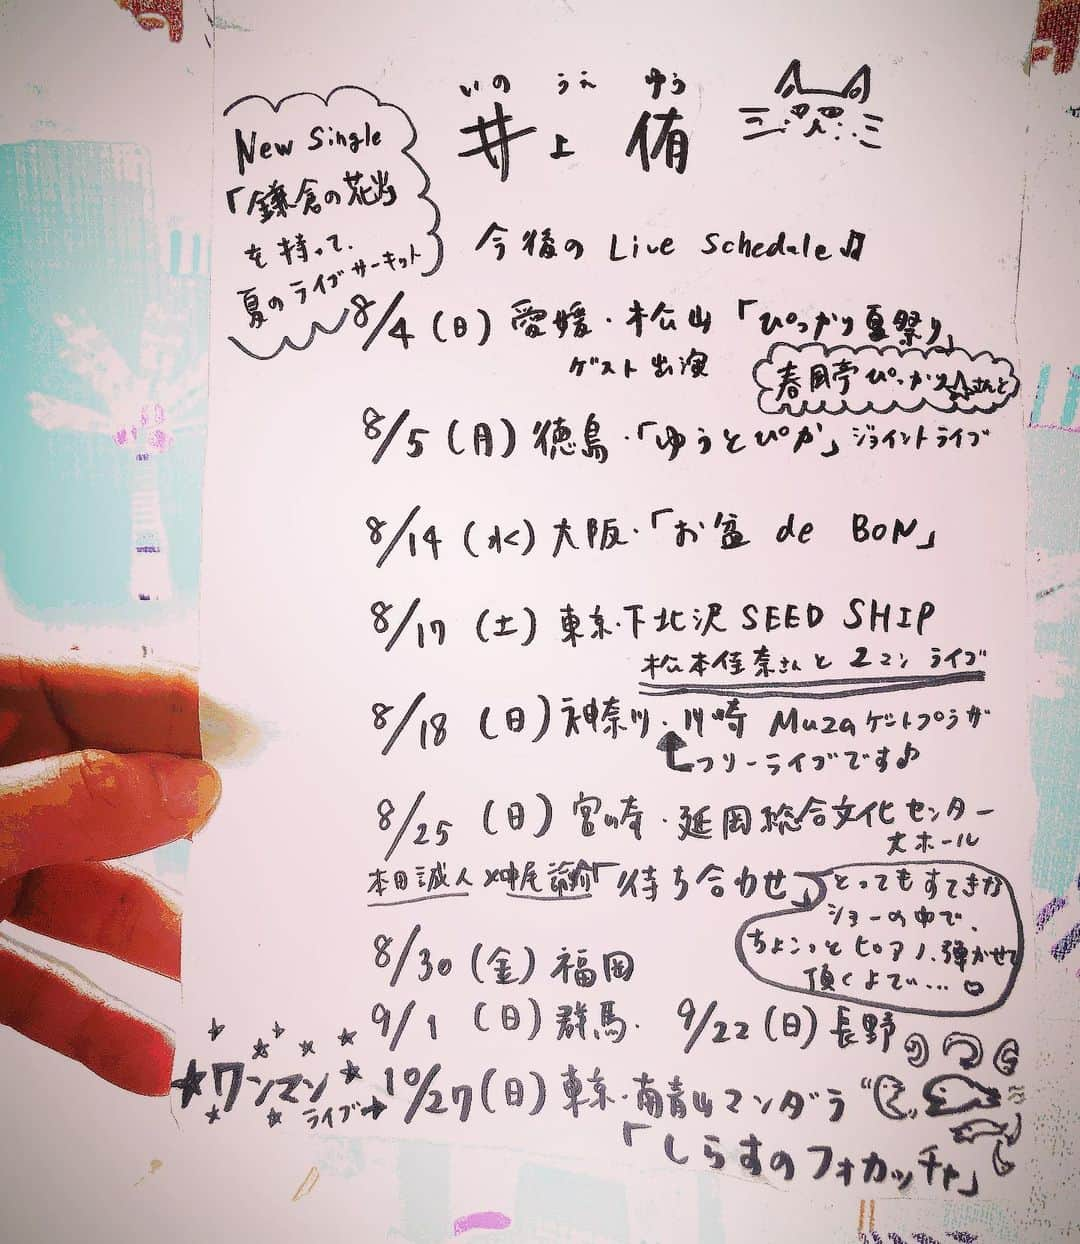 いのうえ ゆう
井上 侑
New Single
「鎌倉の花火」
を持って、
夏のライブサーキット
今後の Live Schedule♫
8/4(日)愛媛・松山「ぴっかり夏祭り」
ゲスト出演
春風亭ぴっかり☆さんと
8/5(月)徳島・「ゆうとぴか」ジョイントライブ
8/14(水)大阪・「お盆 de BON」
8/17(土)東京・下北沢 SEED SHIP
松本佳奈さんと 2マン ライブ
8/18(日)神奈川・川崎 Muzaゲートプラザ
フリーライブです♪
8/25(日)宮崎・延岡総合文化センター
大ホール
本田誠人×中尾諭介「待ち合わせ」
とってもすてきな
ショーの中で、
ちょこっとピアノ、弾かせて
頂くよてい...
8/30(金)福岡
9/1(日)群馬. 9/22(日)長野
★ワンマン
ライブ→
10/27(日)東京・南青山マンダラ
「しらすのフォカッチャ」